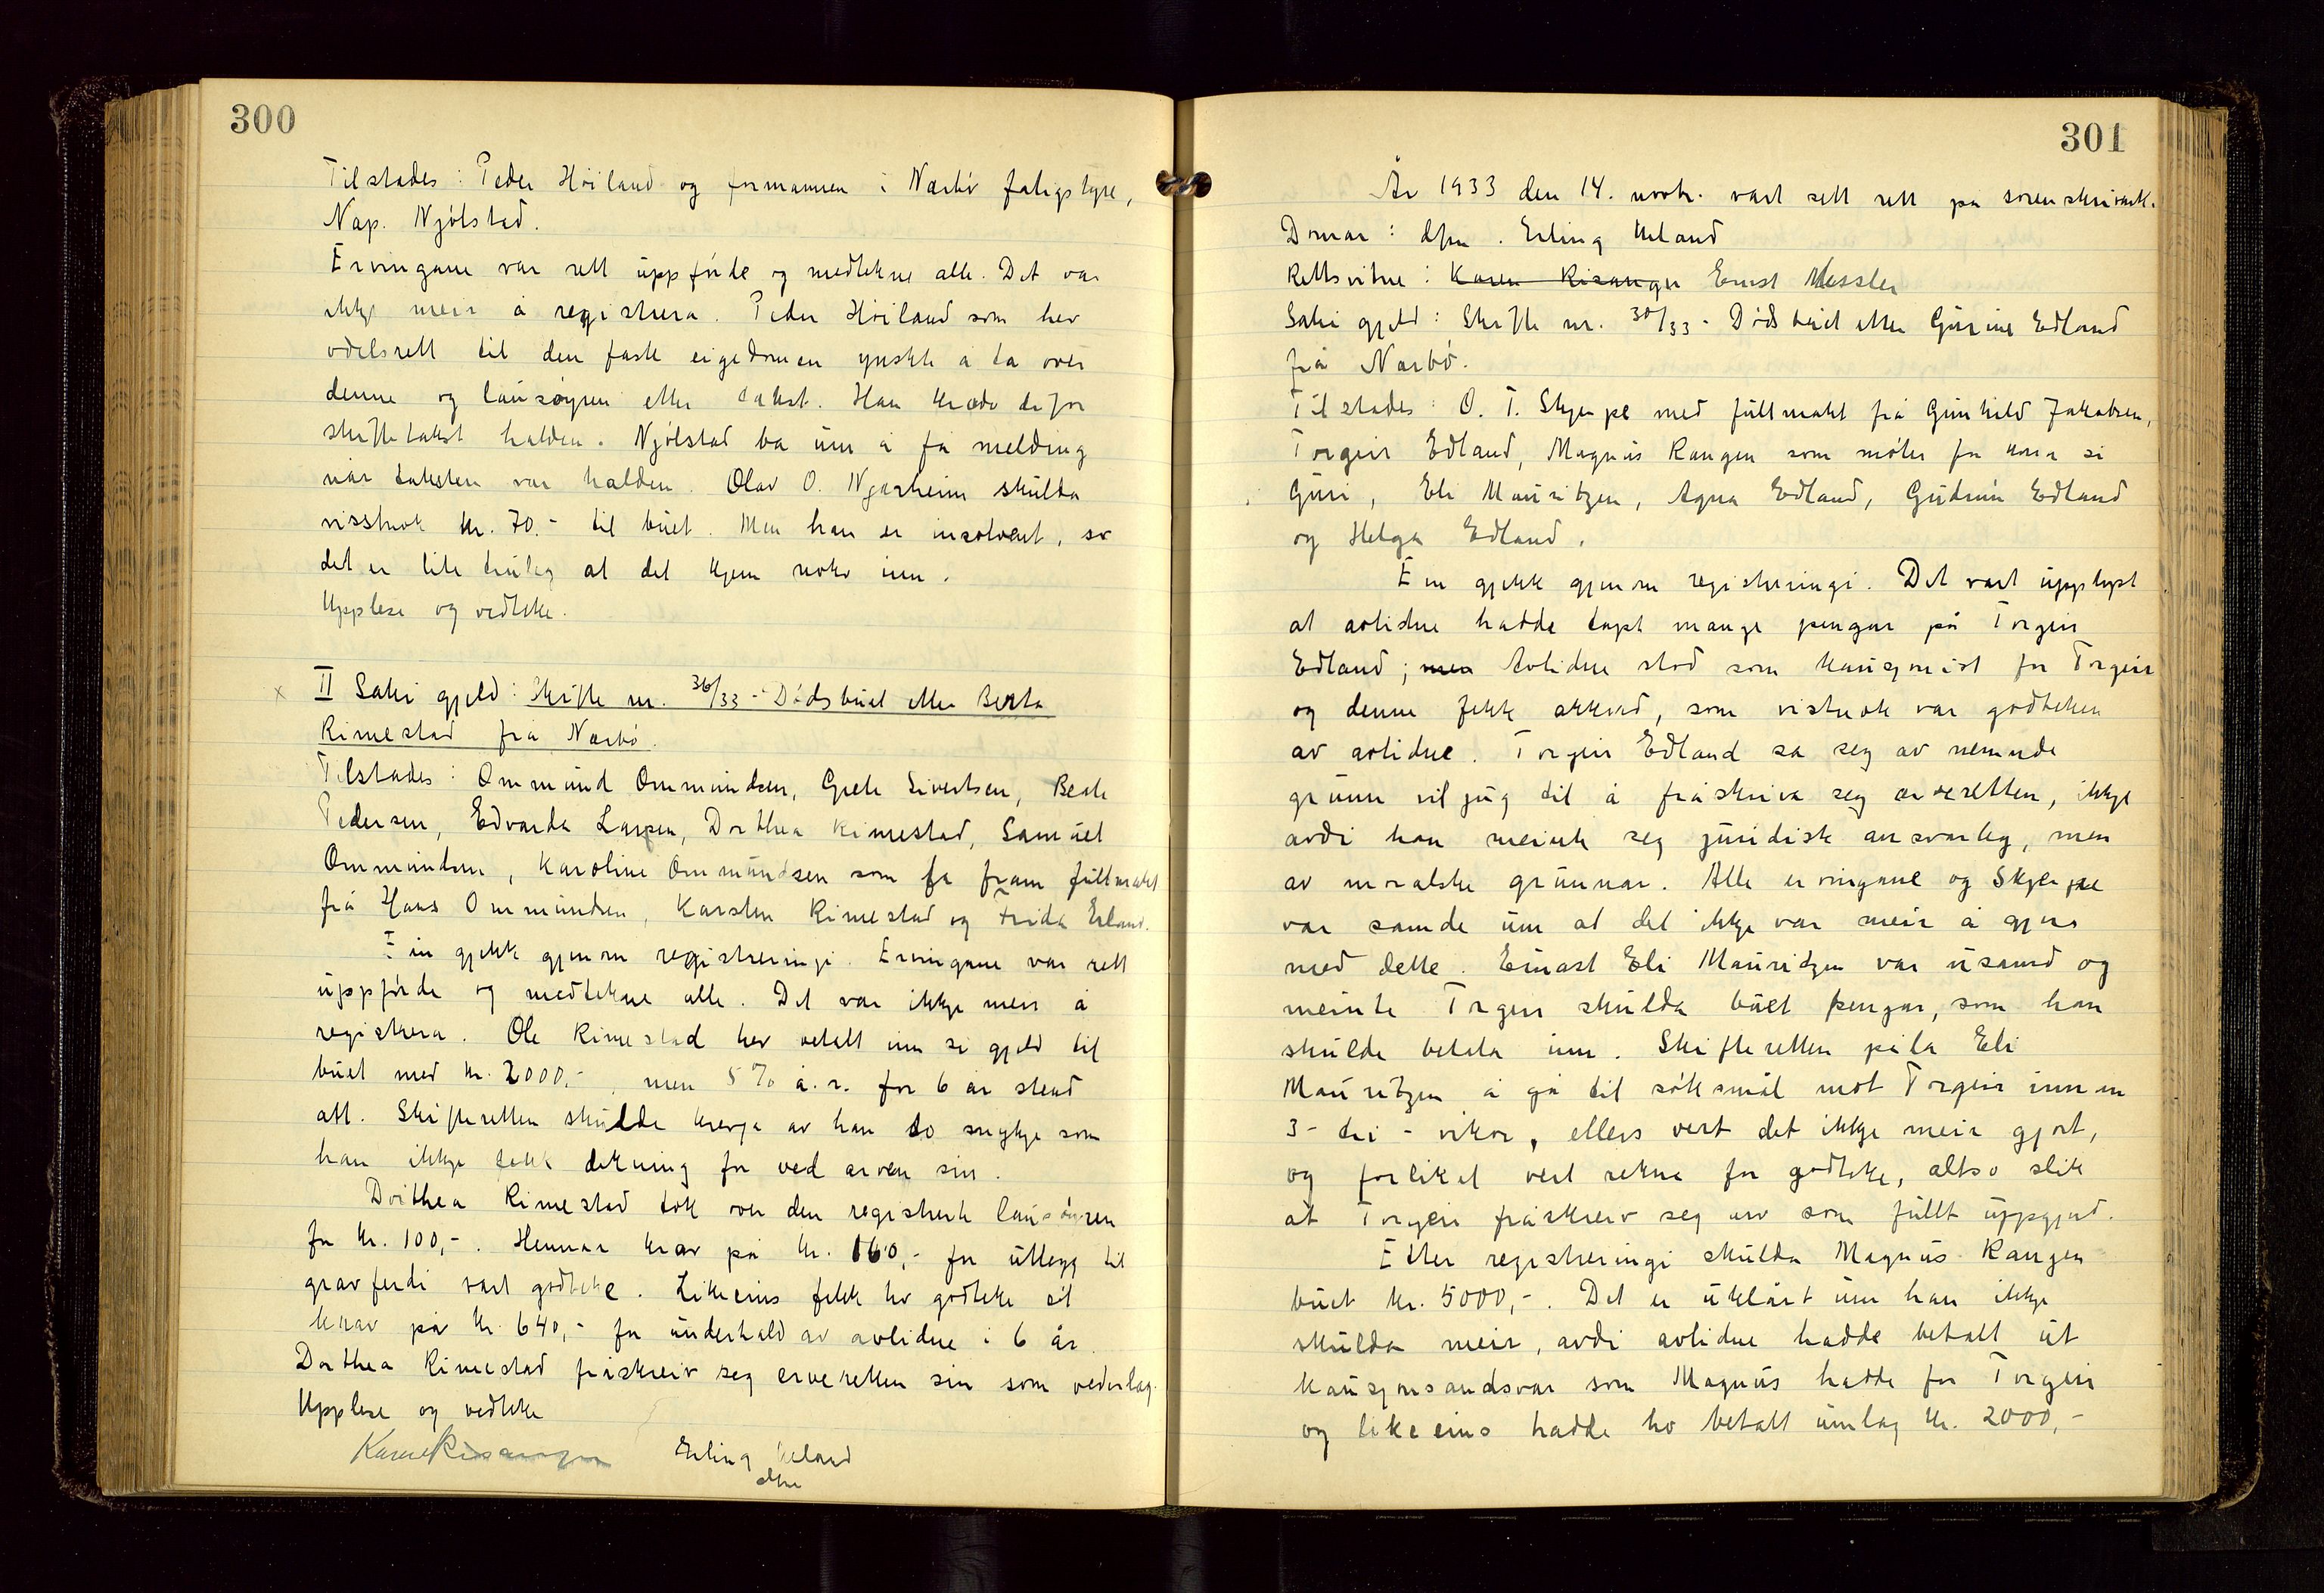 300
Tilstades: Peder Höiland og formannen i Nærbö fatigstyre,
Nap. Njölstad.
Ervingane var rett uppförde og medtekne alle. Det var
ikkje meir å registrera. Peder Höiland som hev
odelsrett til den faste eigedomen ynskte å ta over
denne og lausöyren etter takst. Han kravde difor
skiftetakst halden. Njölstad ba um å få melding
når taksten var halden. Olav O. Njærheim skulda
visstnok kr. 70.- til buet. Men han er insolvent, so
det er lite truleg at det kjem noko inn.
Upplese og vedteke.
x II Saki gjeld: Skifte nr. 36/33 - Dödsbuet etter Berta
Rimestad frå Nærbö.
Tilstades: Ommund Ommundsen, Grete Sivertsen, Berte
Pedersen, Edvarda Larsen, Dorthea Rimestad, Samuel
Ommundsen, Karoline Ommundsen som la fram fullmakt
frå Hans Ommundsen, Karsten Rimestad og Frida Erland.
Ein gjekk gjenom registreringi. Ervingane var rett
uppförde og medtekne alle. Det var ikkje meir å
registrera. Ole Rimestad hev betalt inn si gjeld til
buet med kr. 2000,-, men 5% å.r. for 6 år stend
att. Skifteretten skulde krevja av han so mykje som
han ikkje fekk dekning for ved arven sin.
Dorthea Rimestad tok over den registrerte lausöyren
for kr. 100,-. Hennar krav på kr. 160,- for utlegg til
gravferdi vart godteke. Likeeins fekk ho godteke sit
krav på kr. 640,- for underhald av avlidne i 6 år.
Dorthea Rimestad fråskreiv seg erveretten sin som vederlag.
Upplese og vedteke
Karen Risanger Erling Ueland
dfm
301
År 1933 den 14. novbr. vart sett rett på sorenskrivark.
Domar: dfm. Erling Ueland
Rettsvitne: Karen Risanger Ernst Messler
Saki gjeld: Skifte nr. 30/33 - Dödsbuet etter Gurine Edland
frå Nærbö.
Tilstades: O. T. Skjerpe med fullmakt frå Gunhild Jakobsen,
Torgeir Edland, Magnus Rangen som möter for kona si
Guri, Eli Mauritzen, Agna Edland, Gudrun Edland
og Helga Edland.
Ein gjekk gjenom registreringi. Det vart upplyst
at avlidne hadde tapt mange pengar på Torgeir
Edland; men Avlidne stod som kausjonist for Torgeir
og denne fekk akkord, som vistnok var godteken
av avlidne. Torgeir Edland sa seg av nemnde
grunn viljug til å fråskriva seg arveretten, ikkje
avdi han meinte seg juridisk ansvarleg, men
av moralske grunnar. Alle ervingane og Skjerpe
var samde um at det ikkje var meir å gjera
med dette. Einast Eli Mauritzen var usamd og
meinte Torgeir skulda buet pengar, som han
skulde betala inn. Skifteretten påla Eli
Mauritzen å gå til söksmål mot Torgeir innan
3 - tri - vikor, ellers vert det ikkje meir gjort,
og forliket vert rekna for godteke, altso slik
at Torgeir fråskreiv seg arv som fullt uppgjerd.
Etter registreringi skulda Magnus Rangen
buet kr. 5000,-. Det er uklårt um han ikkje
skulda meir, avdi avlidne hadde betalt ut
kausjonsandsvar som Magnus hadde for Torgeir
og likeeins hadde ho betalt umlag kr. 2000,-